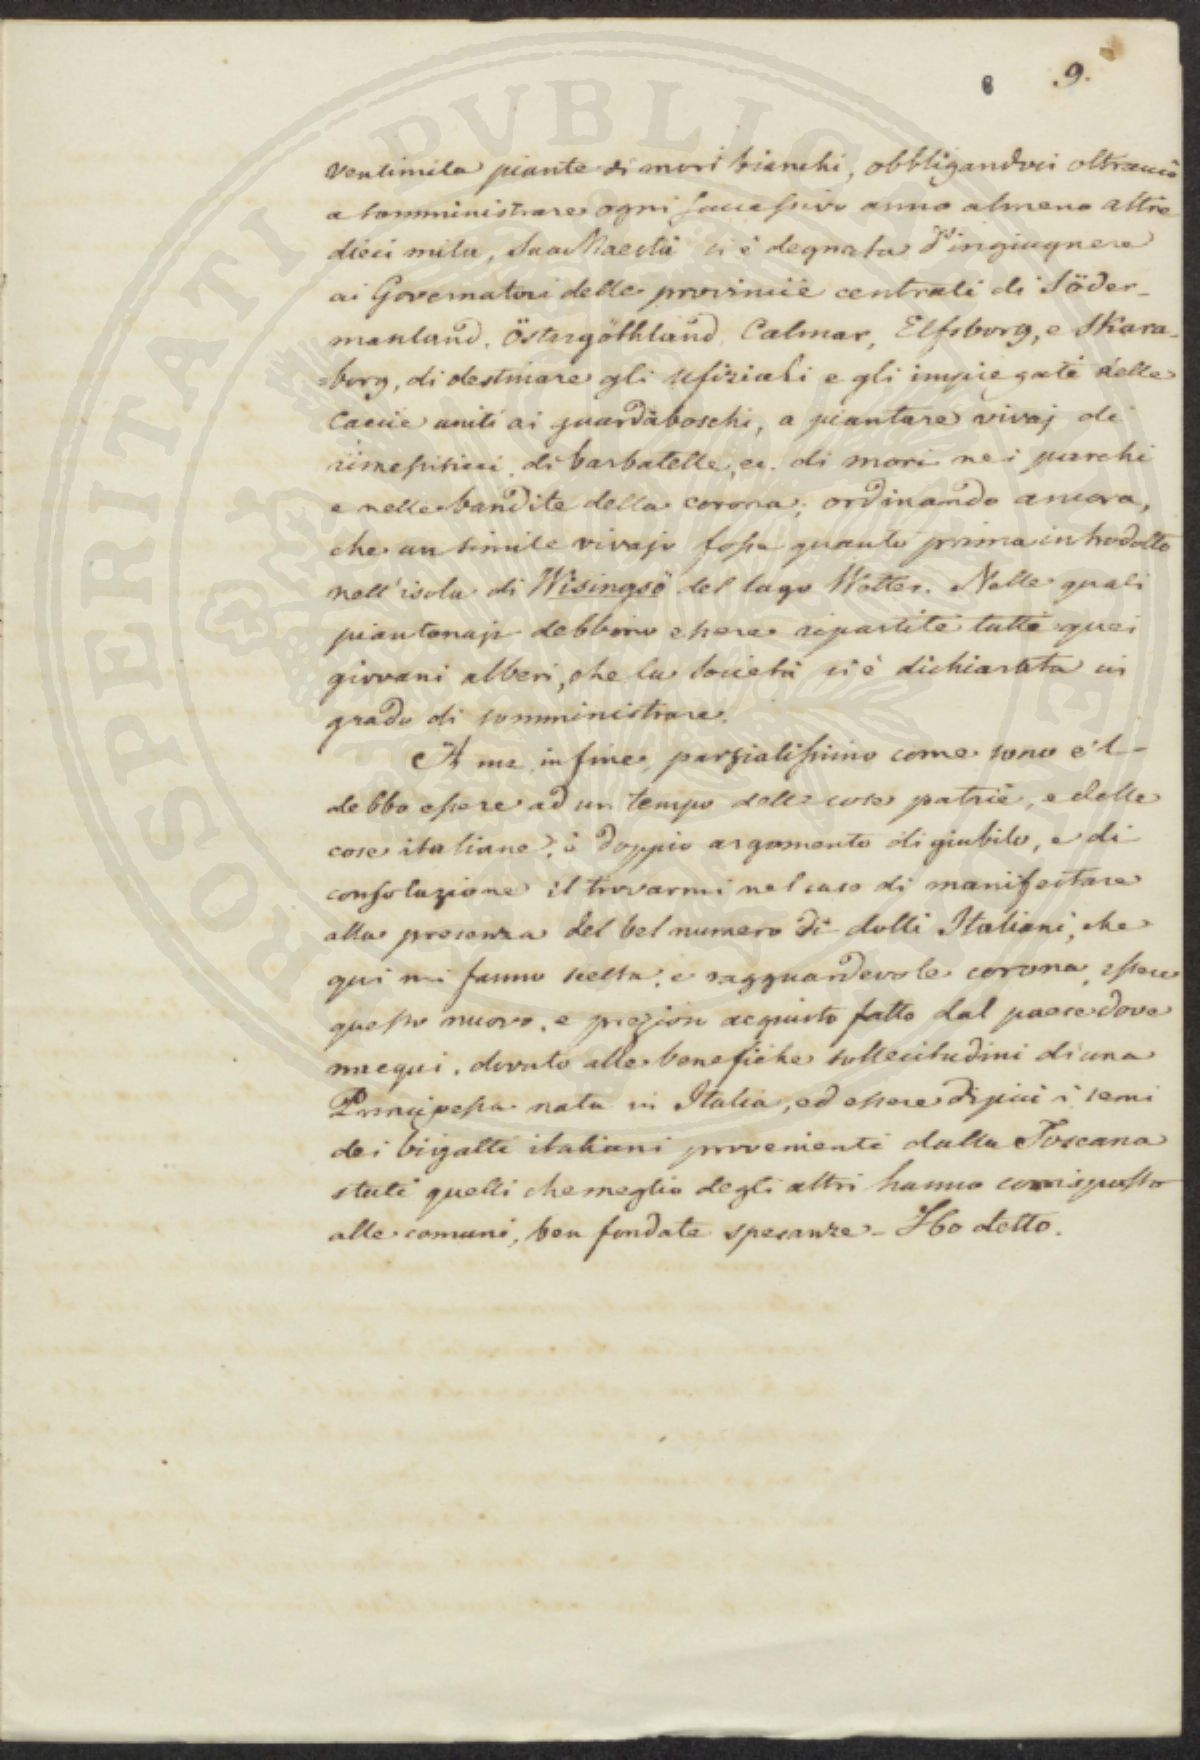 9.
ventimila piante di mori bianchi, obbligandosi oltracciò
a somministrare ogni successivo anno almeno altre
dieci mila, Sua Maestà si è degnata d'ingiugnere
ai Governatori delle provincie centrali di Söder-
manland, Östergöthland, Calmar, Elfsborg, e Skara-
=borg, di destinare gli ufiziali e gli impiegati delle
Caccie uniti ai guardaboschi, a piantare vivaj di
rimessiticci, di barbatelle, ec. di mori nei parchi
e nelle bandite della corona; ordinando ancora,
che un simile vivajo fosse quanto prima introdotto
nell'isola di Wisingsö del lago Wetter. Nelle quali
piantonaje debbono essere ripartite tutti quei
giovani alberi, che la Società si è dichiarata in
grado di somministrare.
A me in fine, parzialissimo come sono e il
debbo essere ad un tempo delle cose patrie, e delle
cose italiane, è doppio argomento di giubilo, e di
consolazione il trovarmi nel caso di manifestare
alla presenza del bel numero di dotti Italiani, che
qui mi fanno scelta, e ragguardevole corona, essere
questo nuovo, e prezioso acquisto fatto dal paese dove
nacqui, dovuto alle benefiche sollecitudini di una
Principessa nata in Italia, ed essere di più i semi
dei bigatti italiani provenienti dalla Toscana
stati quelli che meglio degli altri hanno corrisposto
alle comuni, ben fondate speranze - Ho detto.
PROSPERITATI PVBLICAE